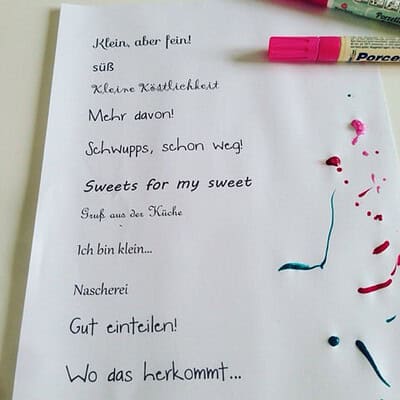 Klein, aber fein!
süß
Kleine Köstlichkeit
Mehr davon!
Schwupps, schon weg!
Sweets for my sweet
Gruß aus der Küche
Ich bin klein...
Nascherei
Gut einteilen!
Wo das herkommt...
Porce